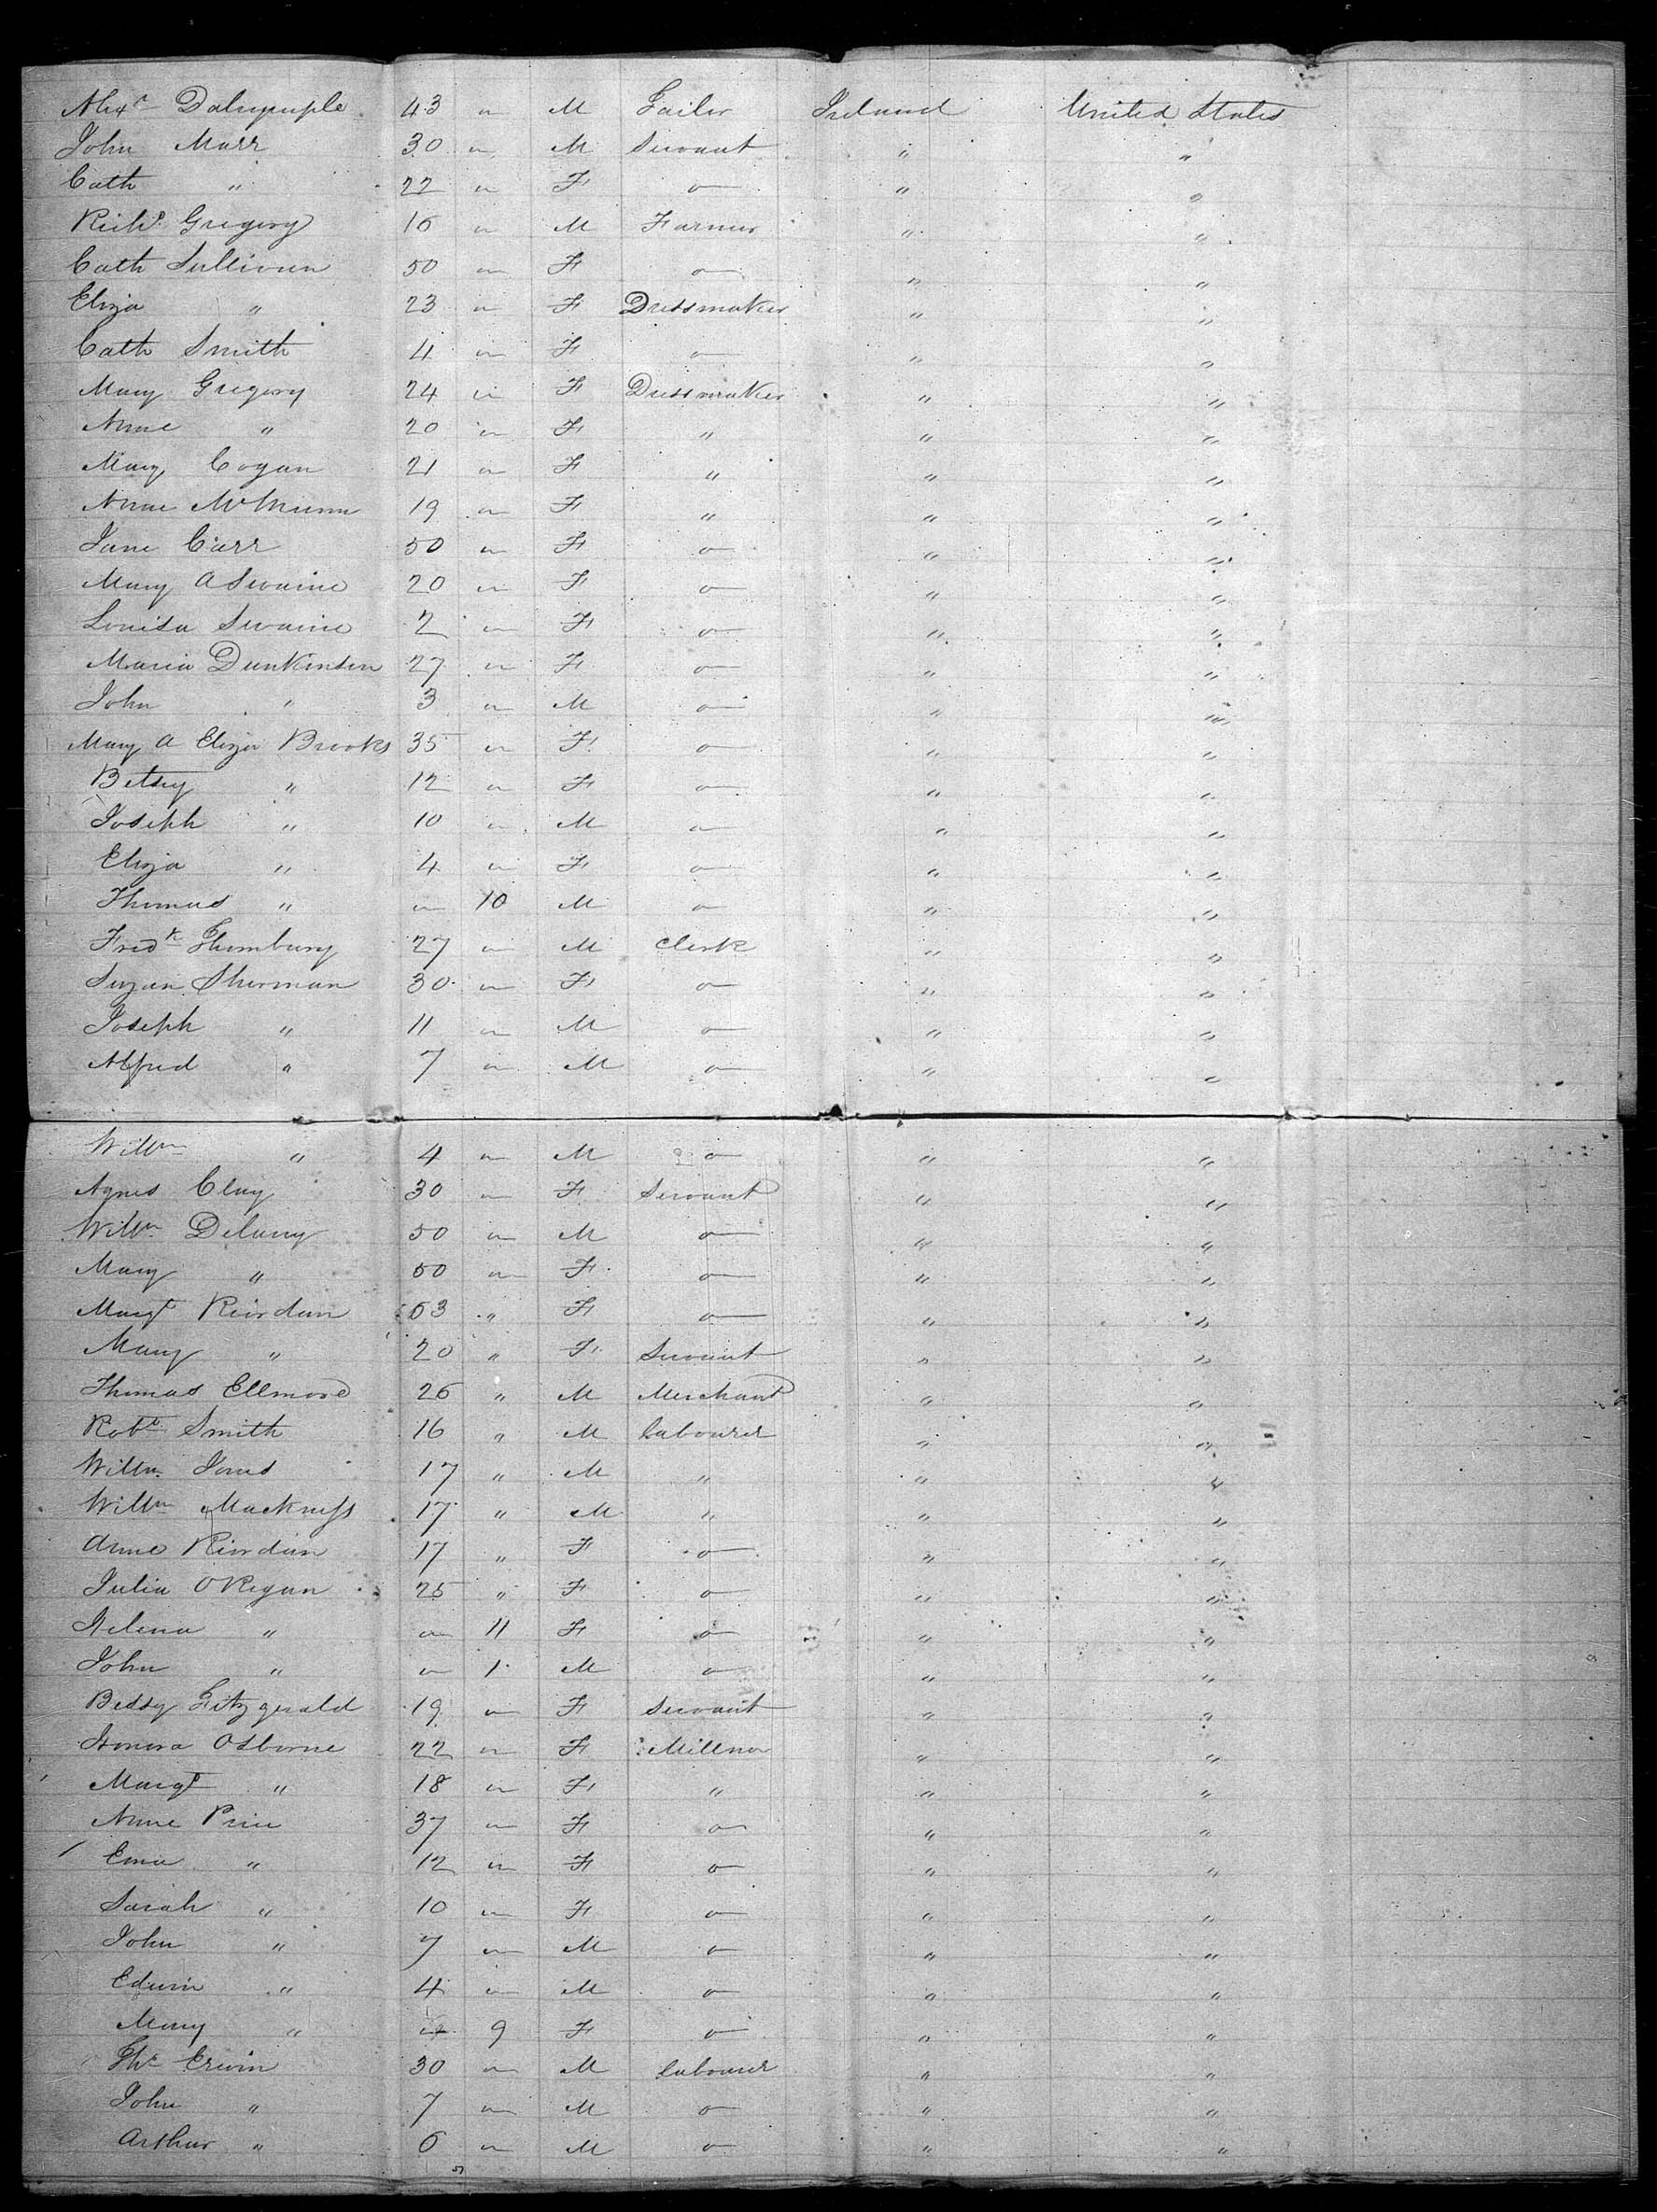 Alexr Dalrymple 43 " M Tailor Ireland United States
John Marr 30 " M Servant " "
Cath " 22 " F o " "
Richd Gregory 16 " M Farmer " "
Cath Sullivan 50 " F o " "
Eliza " 23 " F Dressmaker " "
Cath Smith 4 " F o " "
Mary Gregory 24 " F Dressmaker " "
Anne " 20 " F " " "
Mary Cogan 21 " F " " "
Anne McMunn 19 " F " " "
Jane Carr 50 " F o " "
Mary A Swaine 20 " F o " "
Louisa Swaine 2 " F o " "
Maria Dunkinson 27 " F o " "
John " 3 " M o " "
Mary A Eliza Brooks 35 " F o " "
Betsey " 12 " F o " "
Joseph " 10 " M o " "
Eliza " 4 " F o " "
Thomas " " 10 M o " "
Fredk Thornbury 27 " M Clerk " "
Suzan Sherman 30 " F o " "
Joseph " 11 " M o " "
Alfred " 7 " M o " "
Willm " 4 " M o " "
Agnes Clay 30 " F Servant " "
Willm Delany 50 " M o " "
Mary " 50 " F o " "
Margt Riordan 63 " F o " "
Mary " 20 " F Servant " "
Thomas Ellmore 26 " M Merchant " "
Robt Smith 16 " M Labourer " "
Willm Jones 17 " M " " "
Willm Mackness 17 " M " " "
Anne Riordan 17 " F o " "
Julia O Regan 25 " F o " "
Helena " " 11 F o " "
John " " 1 M o " "
Bessy Fitzgerald 19 " F Servant " "
Honora Osborne 22 " F Millner " "
Margt " 18 " F " " "
Anne Price 37 " F o " "
Ema " 12 " F o " "
Sarah " 10 " F o " "
John " 7 " M o " "
Edwin " 4 " M o " "
Mary " " 9 F o " "
Ths Erwin 30 " M Labourer " "
John " 7 " M o " "
Arthur " 6 " M o " "